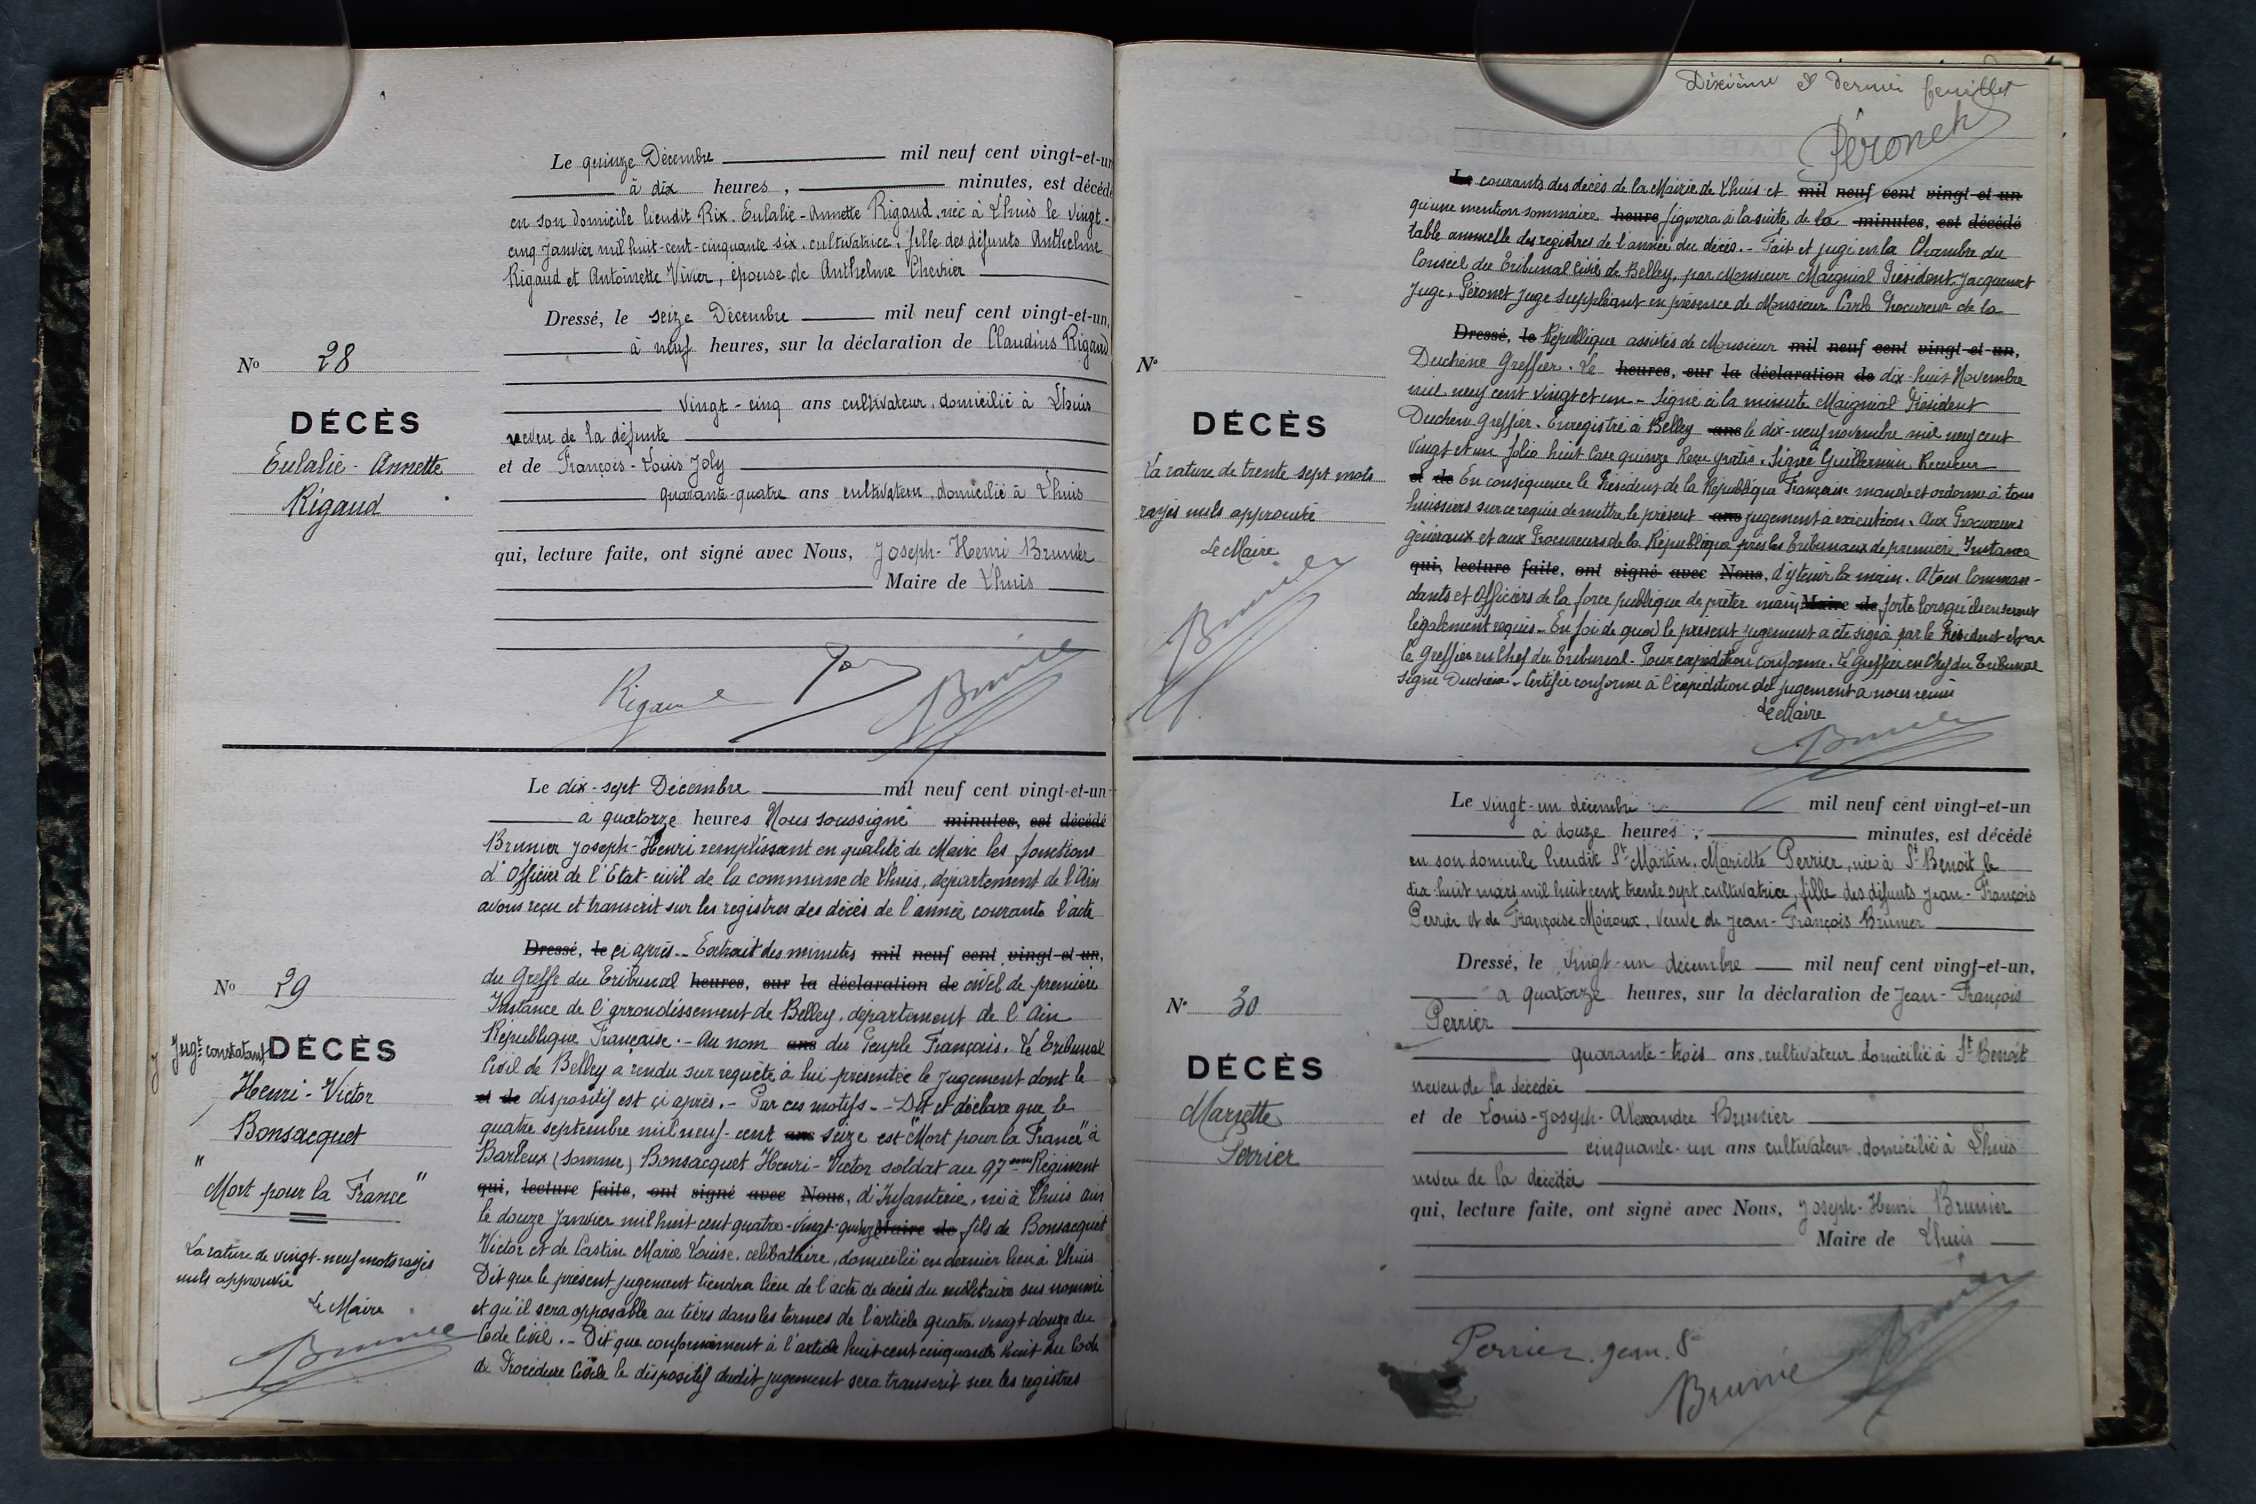 Le quinze Décembre mil neuf cent vingt-et-un
à dix heures, minutes, est décédé
en son domicile lieudit Rix. Eulalie-Annette Rigaud, née à Lhuis le vingt-
cinq Janvier mil huit-cent-cinquante six, cultivatrice, fille des défunts Anthelme
Rigaud et Antoinette Vivier, épouse de Anthelme Chevrier
Dressé, le seize Décembre mil neuf cent vingt-et-un,
à neuf heures, sur la déclaration de Claudius Rigaud
vingt-cinq ans cultivateur, domicilié à Lhuis
neveu de la défunte
et de François-Louis Joly
quarante-quatre ans cultivateur, domicilié à Lhuis
qui, lecture faite, ont signé avec Nous, Joseph-Henri Brunier
Maire de Lhuis
No 28
DÉCÈS
Eulalie-Annette
Rigaud
Rigaud Brunier
Le dix-sept Décembre mil neuf cent vingt-et-un
à quatorze heures Nous soussigné minutes, est décédé
Brunier Joseph-Henri remplissant en qualité de Maire les fonctions
d'Officier de l'Etat-civil de la commune de Lhuis, département de l'Ain
avons reçu et transcrit sur les registres des décès de l'année courante l'acte
Dressé, le ci après.- Extrait des minutes mil neuf cent vingt-et-un,
du Greffe du Tribunal heures, sur la déclaration de civil de première
Instance de l'arrondissement de Belley, département de l'Ain
République Française.- Au nom ans du Peuple Français. Le Tribunal
Civil de Belley a rendu sur requête à lui présentée le jugement dont le
et de dispositif est çi après.- Par ces motifs.- Dit et déclare que le
quatre septembre mil neuf-cent ans seize est "Mort pour la France" à
Barleux (Somme) Bonsacquet Henri-Victor soldat au 97eme Régiment
qui, lecture faite, ont signé avec Nous, d'Infanterie, né à Lhuis Ain
le douze Janvier mil huit cent quatre-vingt-quinze Maire de fils de Bonsacquet
Victor et de Castin Marie Louise, célibataire, domicilié en dernier lieu à Lhuis
Dit que le présent jugement tiendra lieu de l'acte de décès du militaire sus nommé
et qu'il sera opposable au tiers dans les termes de l'article quatre vingt douze du
Code Civil.- Dit que conformément à l'article huit cent cinquante huit du Code
de Procédure Civile le dispositif dudit jugement sera transcrit sur les registres
No 29
Jugt constatant DÉCÈS
Henri-Victor
Bonsacquet
"Mort pour la France"
La rature de vingt-neuf mots rayés
nuls approuvée
Le Maire
Brunier
Dixième et dernier feuillet
Péronet
Le courants des décès de la Mairie de Lhuis et mil neuf cent vingt-et-un
qu'une mention sommaire heure figurera à la suite de la minutes, est décédé
table annuelle des registres de l'année du décès.- Fait et jugé en la Chambre du
Conseil du Tribunal Civil de Belley, par Monsieur Maignial Président, Jacquemet
Juge, Péronet Juge suppléant en présence de Monsieur Carle Procureur de la
Dressé, le République assistés de Monsieur mil neuf cent vingt-et-un,
Duchêne Greffier. Le heures, sur la déclaration de dix-huit Novembre
mil neuf cent vingt et un.- Signé à la minute Maignial Président
Duchêne Greffier. Enregistré à Belley ans le dix-neuf novembre mil neuf cent
vingt et un folio huit Case quinze Reçu gratis. Signé Guillermin Receveur
et de En conséquence le Président de la République Française mande et ordonne à tous
huissiers sur ce requis de mettre le présent ans jugement à exécution. Aux Procureurs
généraux et aux Procureurs de la République près les Tribunaux de première Instance
qui, lecture faite, ont signé avec Nous, d'y tenir la main. A tous Comman-
dants et Officiers de la force publique de prêter main Maire de forte lorsqu'ils en seront
légalement requis.- En foi de quoi le présent jugement a été signé par le Président et par
le Greffier en Chef du Tribunal. Pour expédition conforme. Le Greffier en Chef du Tribunal
signé Duchêne.- Certifié conforme à l'expédition du jugement à nous remis
Le Maire
Brunier
No
DÉCÈS
La rature de trente sept mots
rayés nuls approuvée
Le Maire
Brunier
Le vingt-un décembre mil neuf cent vingt-et-un
à douze heures, minutes, est décédé
en son domicile lieudit St Martin, Mariette Perrier, née à St Benoit le
dix-huit mars mil huit cent trente sept, cultivatrice, fille des défunts Jean-François
Perrier et de Françoise Moiroux, veuve de Jean-François Brunier
Dressé, le vingt-un décembre mil neuf cent vingt-et-un,
à quatorze heures, sur la déclaration de Jean-François
Perrier
quarante-trois ans, cultivateur domicilié à St Benoit
neveu de la décédée
et de Louis-Joseph-Alexandre Brunier
cinquante-un ans cultivateur, domicilié à Lhuis
neveu de la décédée
qui, lecture faite, ont signé avec Nous, Joseph-Henri Brunier
Maire de Lhuis
No 30
DÉCÈS
Mariette
Perrier
Perrier Jean
Brunier
Brunier